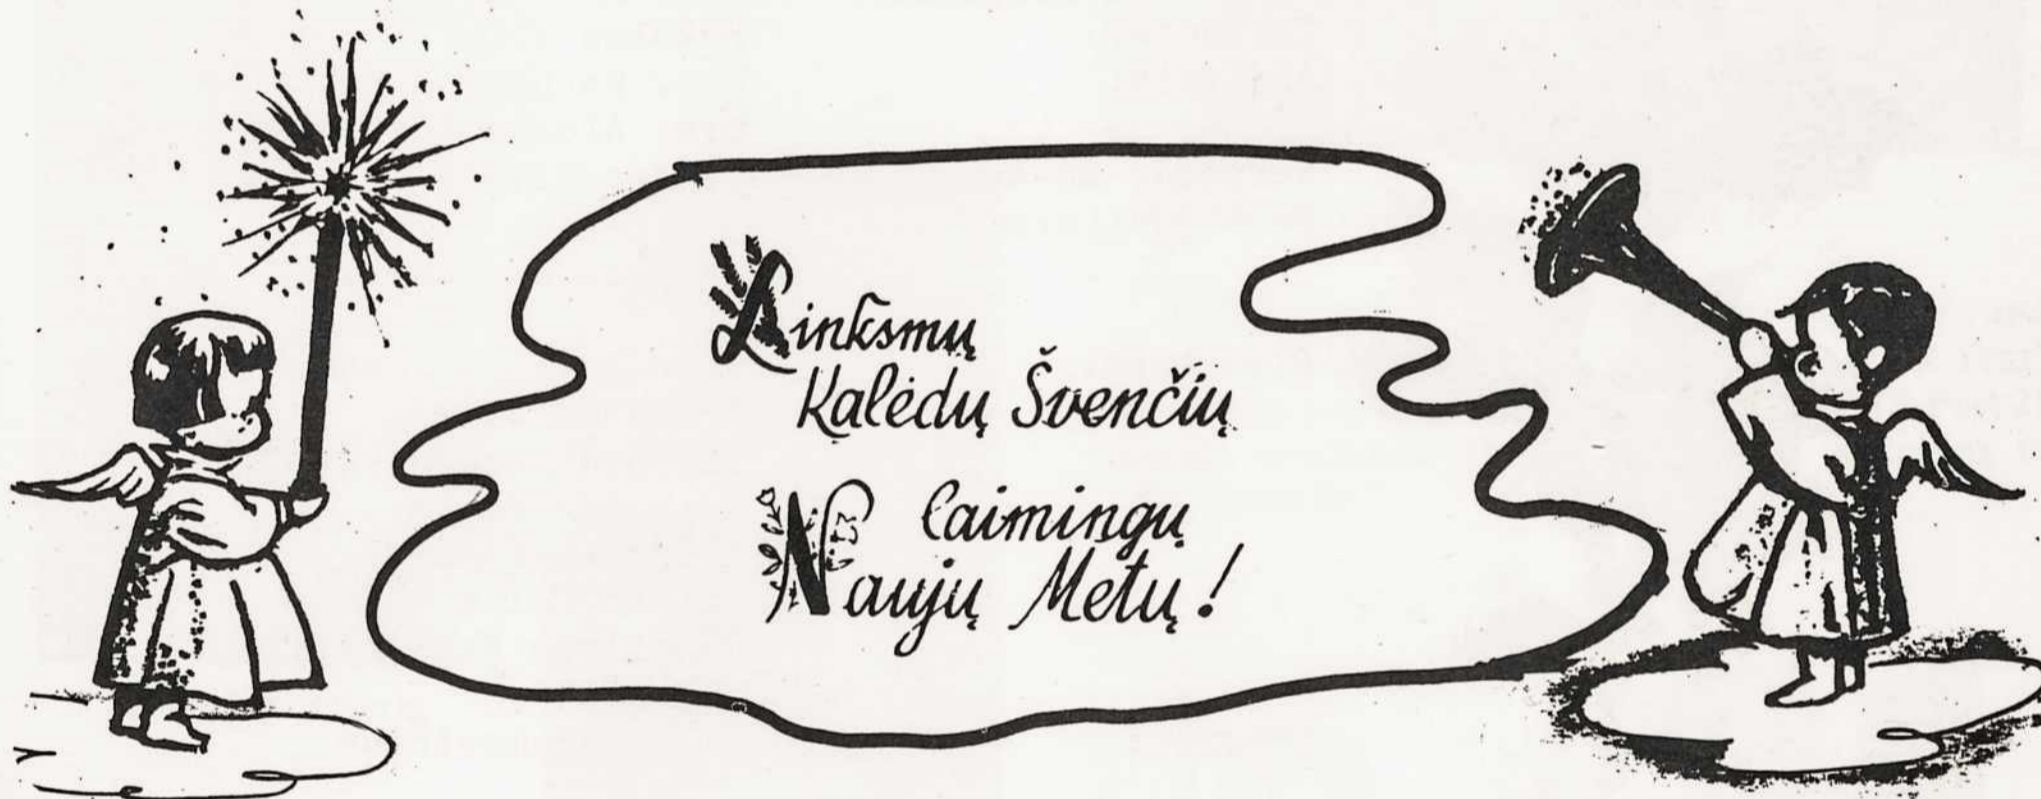 Linksmų
Kalėdų Švenčių
laimingų
Naujų Metų!